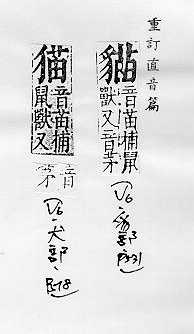 重訂直音篇
貓
音苗捕鼠
獸又音茅
V6、豸部、
猫
音苗捕
鼠獸又
音
茅
V6、犬部、